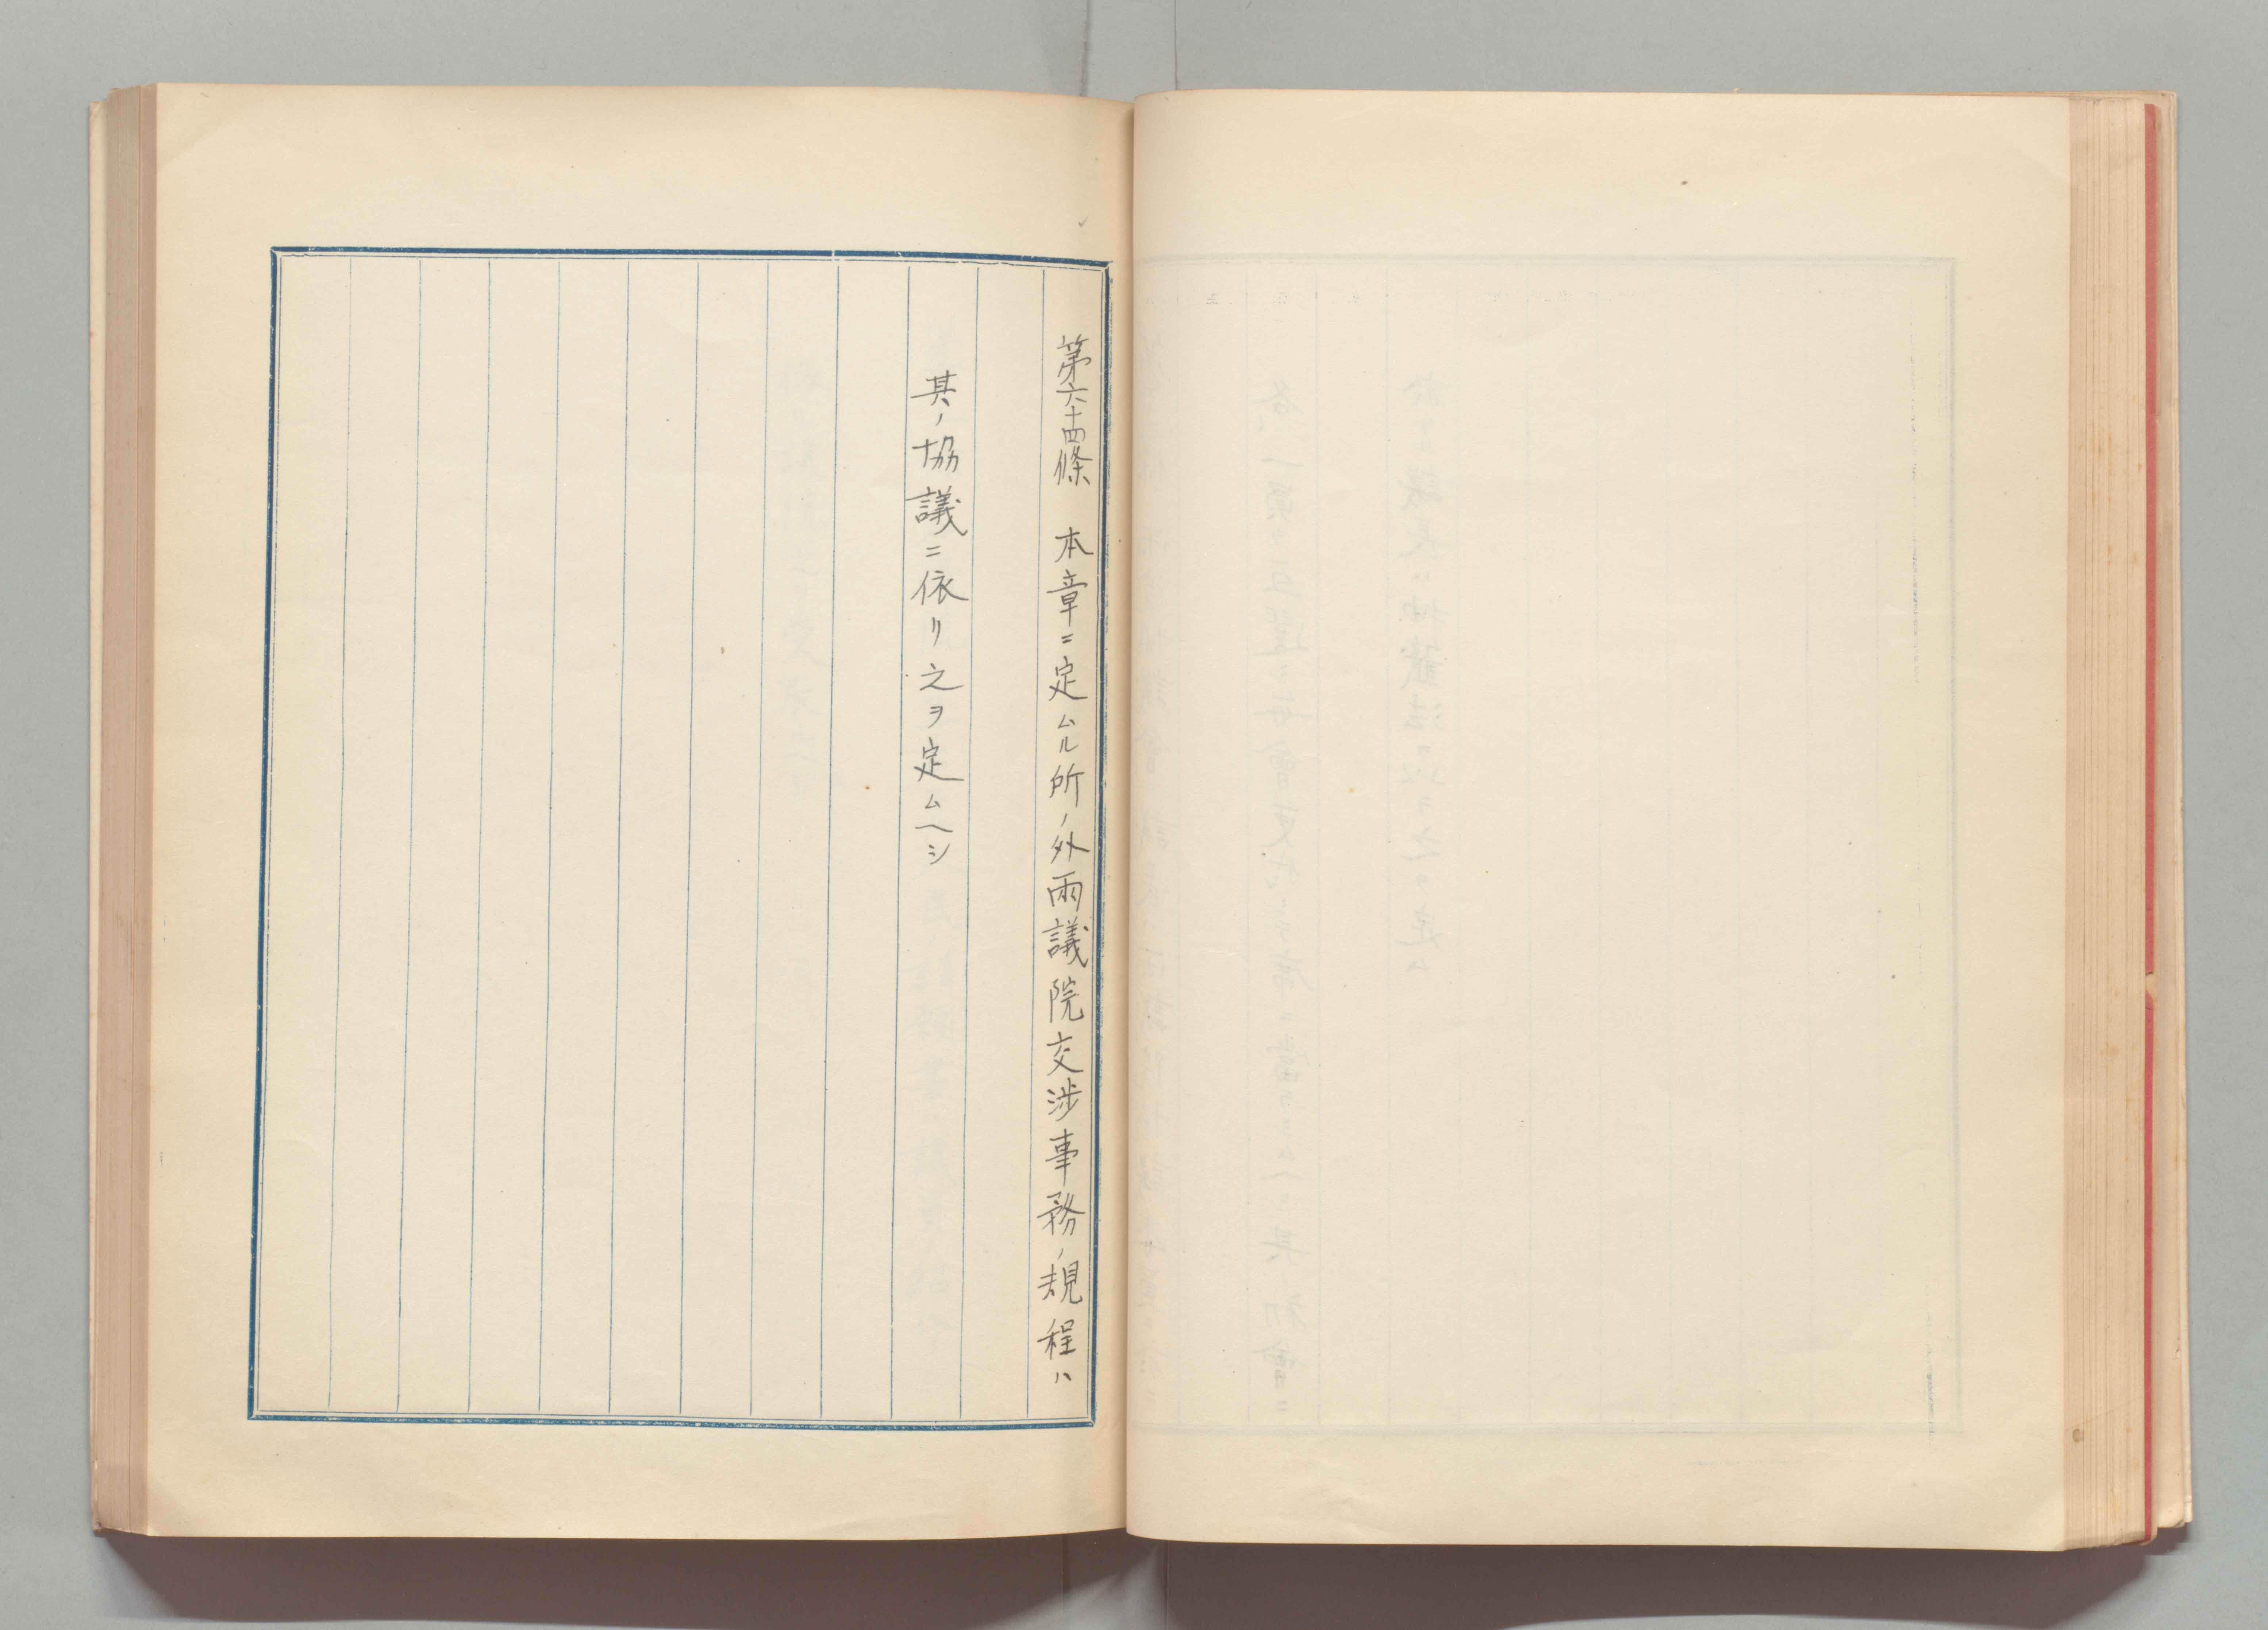 第六十四條　本章ニ定ムル所ノ外兩議院交渉事務ノ規程ハ
其ノ協議ニ依リ之ヲ定ムヘシ